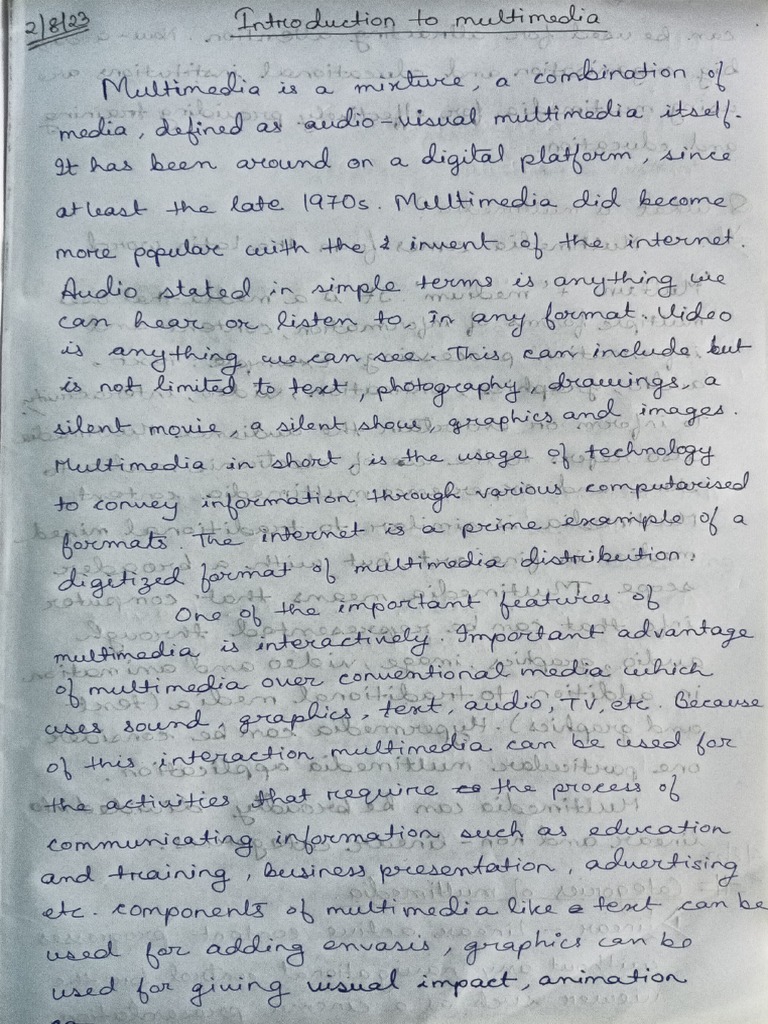 2/8/23
Introduction to multimedia
Multimedia is a mixture, a combination of
media, defined as audio-visual multimedia itself.
It has been around on a digital platform, since
atleast the late 1970s. Multimedia did become
more popular with the invent of the internet.
Audio stated in simple terms is anything we
can hear or listen to, in any format. Video
is anything we can see. This can include but
is not limited to text, photography, drawings, a
silent movie, a silent show, graphics and images.
Multimedia in short, is the usage of technology
to convey information through various computarised
formats. The internet is a prime example of a
digitized format of multimedia distribution.
One of the important features of
multimedia is interactively. Important advantage
of multimedia over conventional media which
uses sound, graphics, text, audio, TV, etc. Because
of this interaction multimedia can be used for
the activities that require the process of
communicating information such as education
and training, business presentation, advertising
etc. components of multimedia like text can be
used for adding envasis, graphics can be
used for giving visual impact, animation